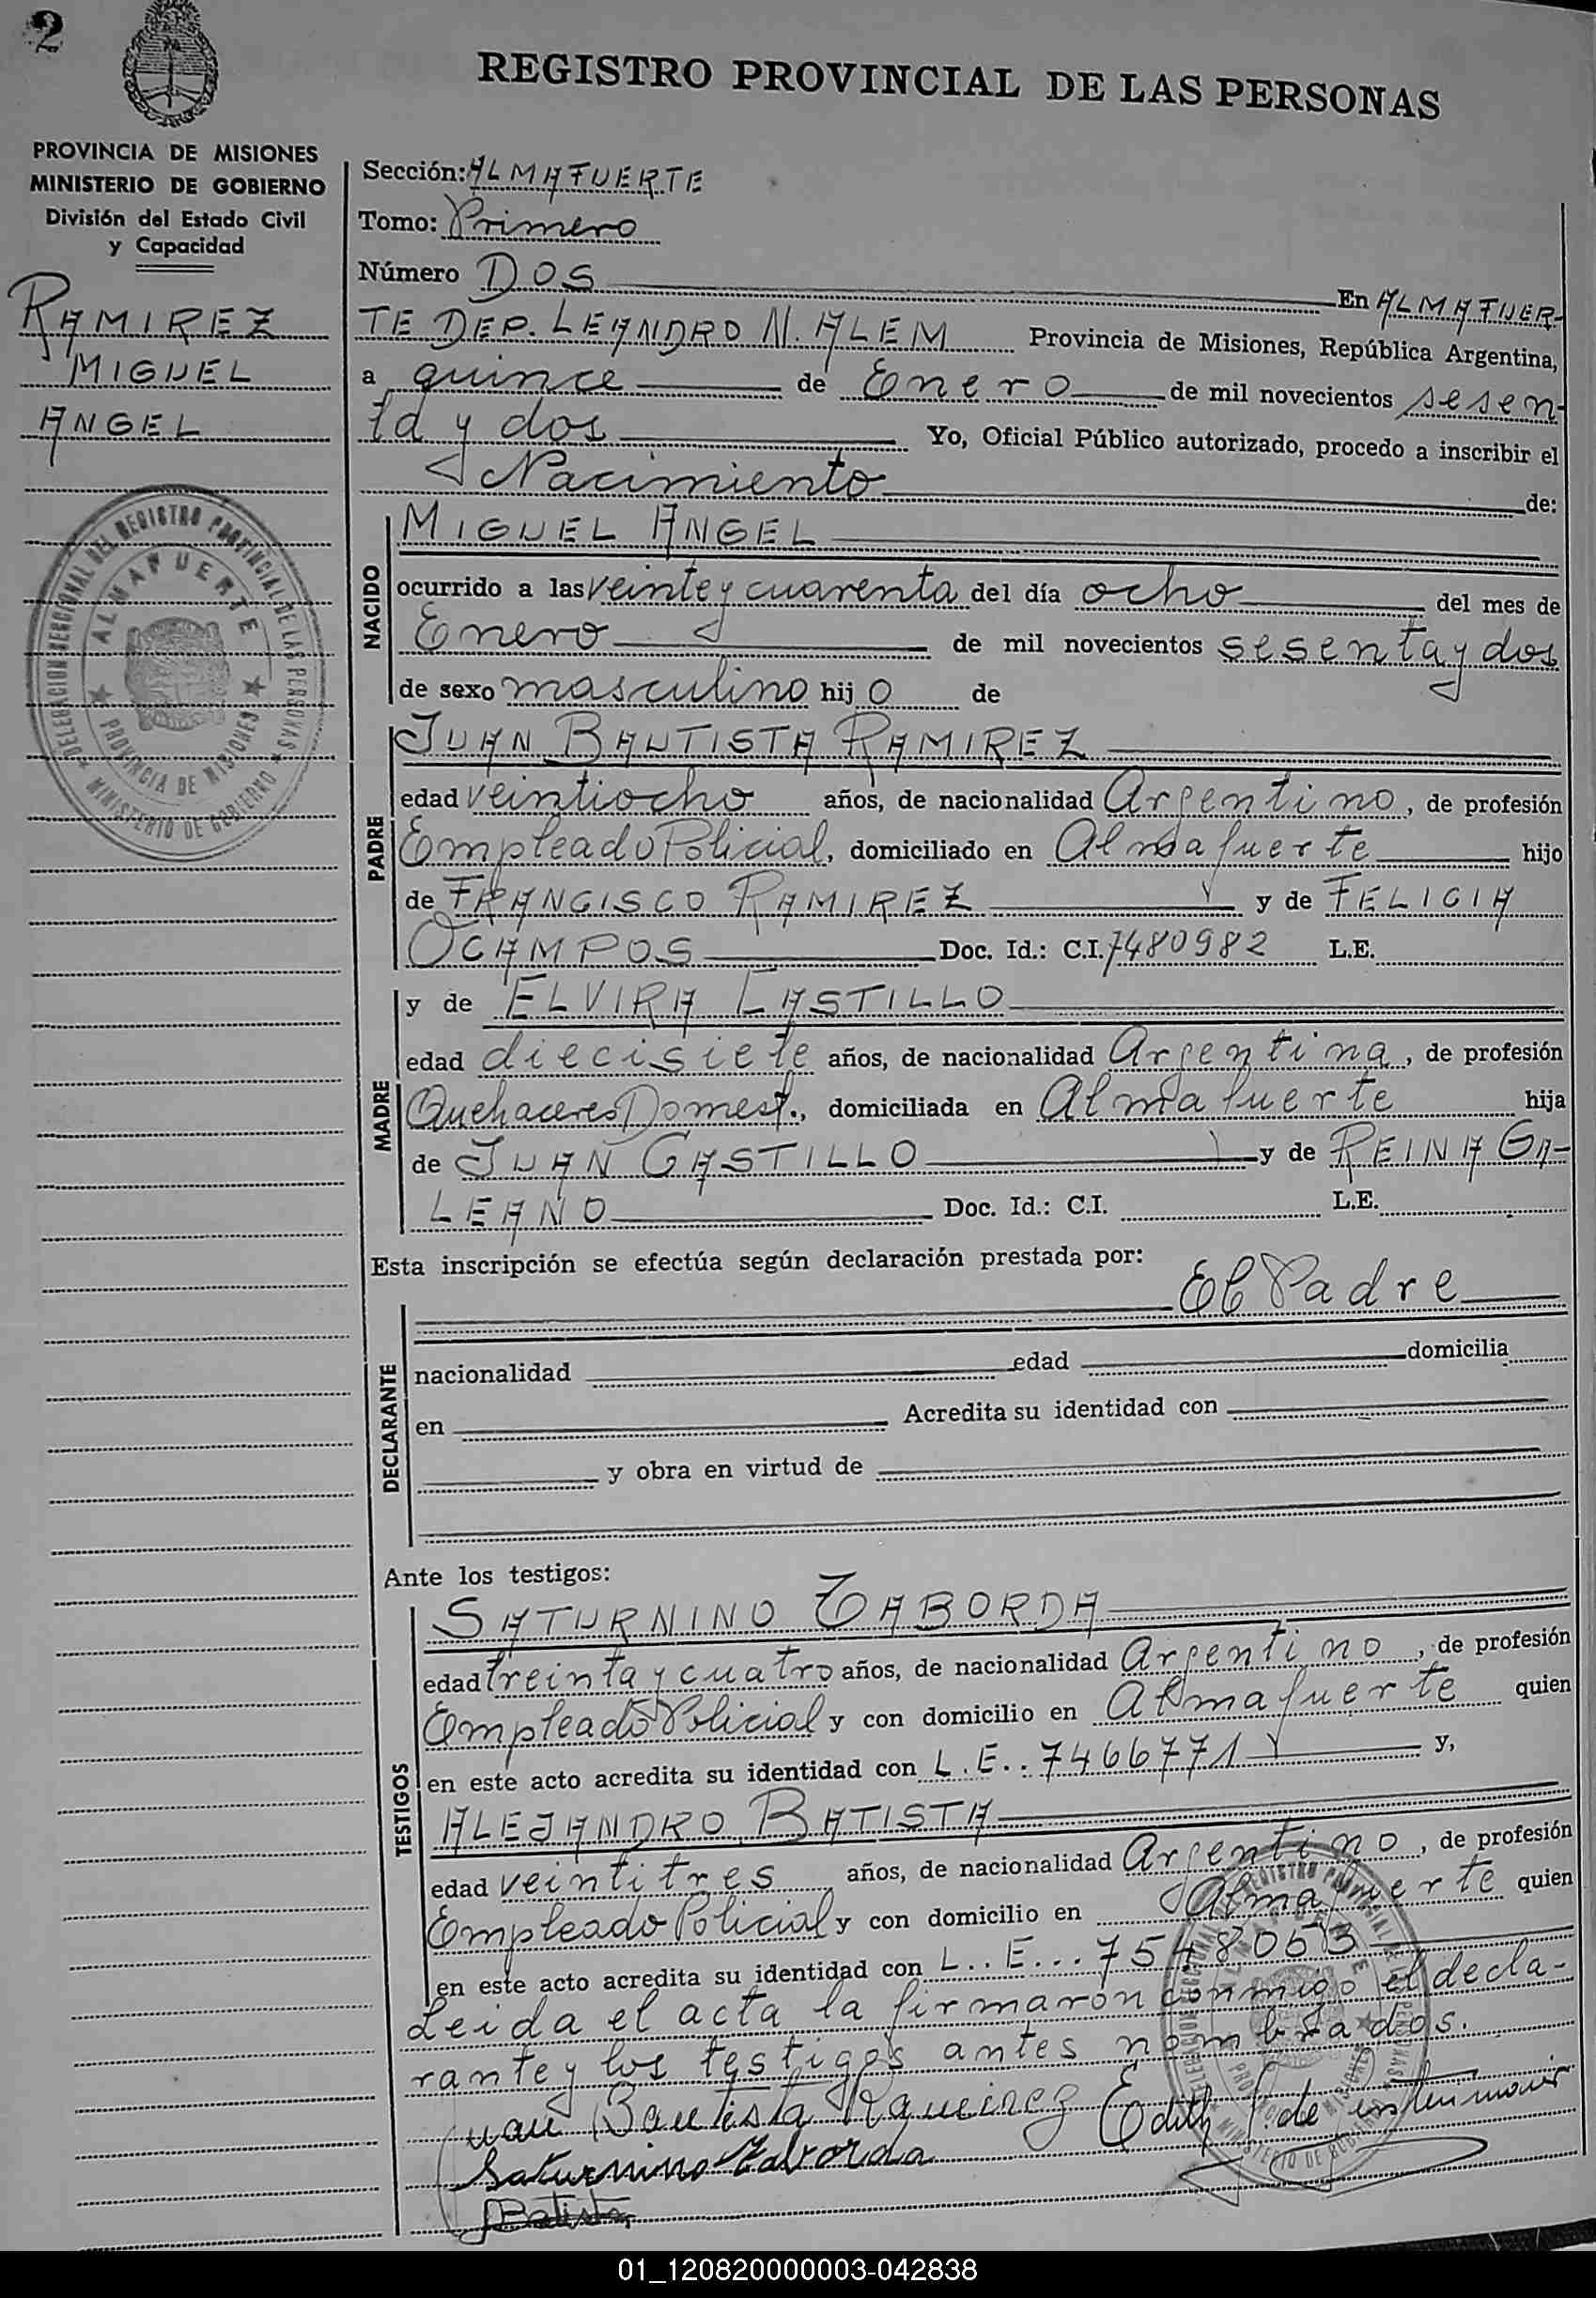 2
REGISTRO PROVINCIAL DE LAS PERSONAS
PROVINCIA DE MISIONES
MINISTERIO DE GOBIERNO
División del Estado Civil
y Capacidad
RAMIREZ
MIGUEL
ANGEL
DELEGACION SECCIONAL DEL REGISTRO PROVINCIAL DE LAS PERSONAS
ALMAFUERTE
PROVINCIA DE MISIONES
MINISTERIO DE GOBIERNO
Sección: ALMAFUERTE
Tomo: Primero
Número DOS En ALMAFUER-
TE DEP. LEANDRO N. ALEM Provincia de Misiones, República Argentina,
a quince de Enero de mil novecientos sesen-
ta y dos Yo, Oficial Público autorizado, procedo a inscribir el
Nacimiento de:
NACIDO
MIGUEL ANGEL
ocurrido a las veinte y cuarenta del día ocho del mes de
Enero de mil novecientos sesenta y dos
de sexo masculino hijo de
PADRE
JUAN BAUTISTA RAMIREZ
edad veintiocho años, de nacionalidad Argentino, de profesión
Empleado Policial, domiciliado en Almafuerte hijo
de FRANCISCO RAMIREZ y de FELICIA
OCAMPOS Doc. Id.: C.I. 7480982 L.E.
MADRE
y de ELVIRA CASTILLO
edad diecisiete años, de nacionalidad Argentina, de profesión
Quehaceres Domest., domiciliada en Almafuerte hija
de JUAN CASTILLO y de REINA GA-
LEANO Doc. Id.: C.I. L.E.
Esta inscripción se efectúa según declaración prestada por:
El Padre
DECLARANTE
nacionalidad edad domicilia
en Acredita su identidad con
y obra en virtud de
Ante los testigos:
TESTIGOS
SATURNINO TABORDA
edad treinta y cuatro años, de nacionalidad Argentino, de profesión
Empleado Policial y con domicilio en Almafuerte quien
en este acto acredita su identidad con L.E.. 7466771 y,
ALEJANDRO BATISTA
edad veintitres años, de nacionalidad Argentino, de profesión
Empleado Policial y con domicilio en Almafuerte quien
en este acto acredita su identidad con L..E... 7548053
Leida el acta la firmaron conmigo el decla-
rante y los testigos antes nombrados.
Juan Bautista Ramirez Edith de
Saturnino Taborda
Batista
01_120820000003-042838